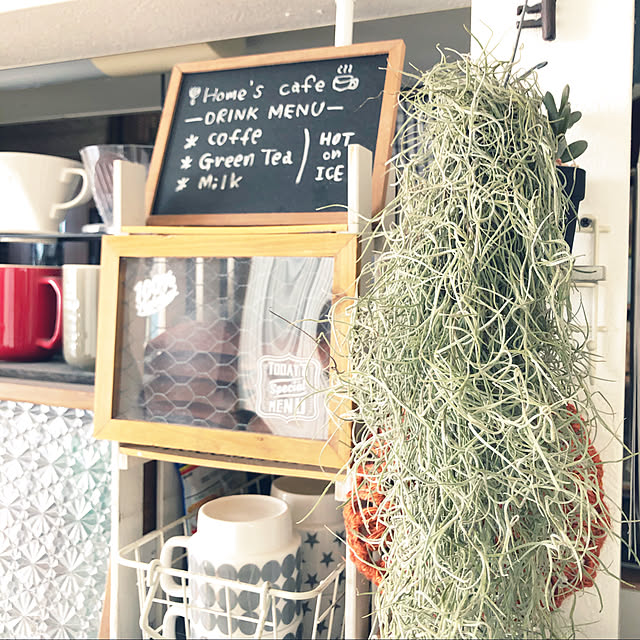 Home's cafe
—DRINK MENU—
* coffe
* Green Tea
* Milk
HOT
on
ICE
TODAY'S
Special
MENU